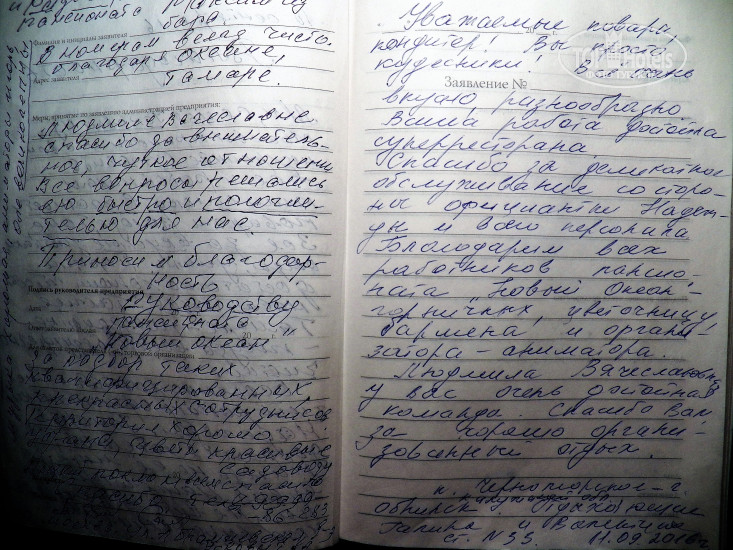 пансионата
бара.
Фамилия и инициалы заявителя
В номерам всегда чисто.
благодаря Оксане,
Адрес заявителя
Тамаре!
Меры, принятые по заявлению администрацией предприятия:
Людмиле Вячеславне
спасибо за вниматель-
ное, чуткое отношение
все вопросы решались
ею быстро и положи-
тельно для нас.
Приносим благодар-
ность
Подпись руководителя предприятия
руководству
Дата
пансионата
„Новый океан"
за подбор таких
квалифицированных,
прекрасных сотрудников
Территория хорошо
цветы красивые
садоводу
Уважаемые повара,
кондитер! Вы просто
кудесники! Всё очень
TOP HOTELS
Заявление №
вкусно, разнообразно
Ваша работа достойна
суперресторана
Спасибо за деликатное
обслуживание со сторо-
ны официантки Надеж-
ды и всего персонала
Благодарим всех
работников пансио-
ната „Новый Океан" -
горничных, цветочницу
бармена, и органи-
затора - аниматора.
Людмила Вячеславовна
у вас очень достойная
команда. Спасибо Вам
за хорошо органи-
зованный отдых.
п. Черноморское - г.
Обнинск
Калужской обл.
Отдыхающие
Галина и Валентина
ст. N 33. 11.09.2016г